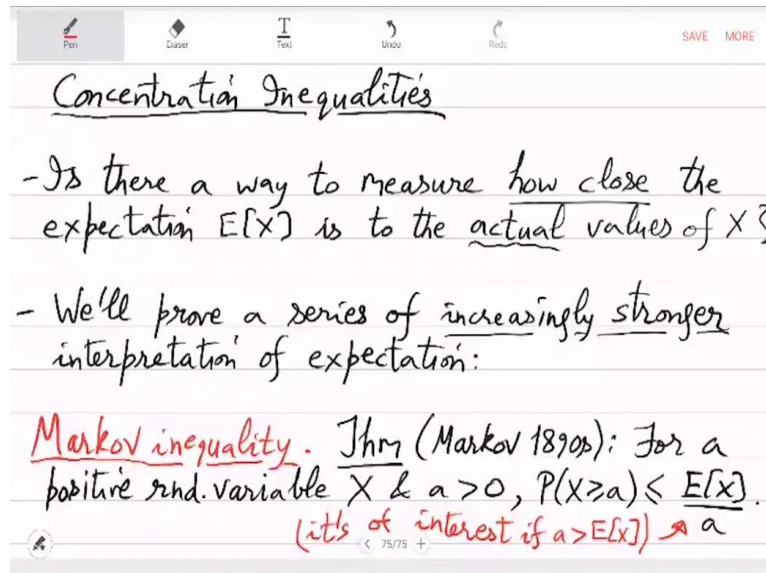 Pen Eraser Text Undo Redo SAVE MORE
Concentration Inequalities
- Is there a way to measure how close the
expectation E[X] is to the actual values of X?
- We'll prove a series of increasingly stronger
interpretation of expectation:
Markov inequality. Thm (Markov 1890s): For a
positive rnd. variable X & a > 0, P(X ≥ a) ≤ E[X]/a.
(it's of interest if a > E[X]) ↗
< 75/75 +